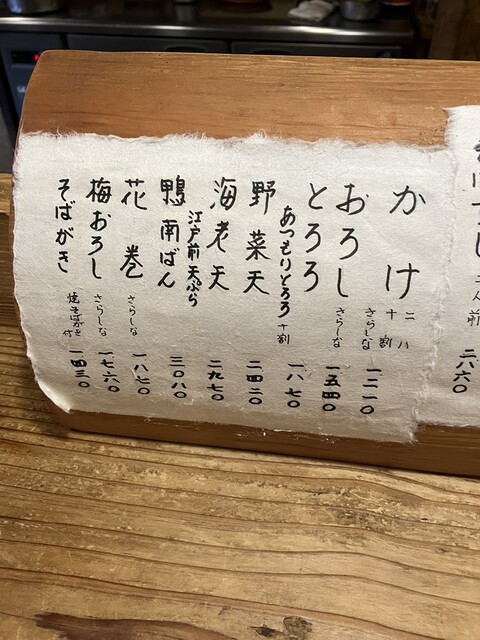 二人前 二八六〇
かけ 二八 十割 さらしな 一二一〇
おろし さらしな 一五四〇
とろろ
あつもりとろろ 十割 一八七〇
野菜天 二四二〇
海老天 二九七〇
江戸前天ぷら
鴨南ばん 二〇八〇
花巻 さらしな 一八七〇
梅おろし さらしな 一七六〇
そばがき 焼そばがき付 一四三〇